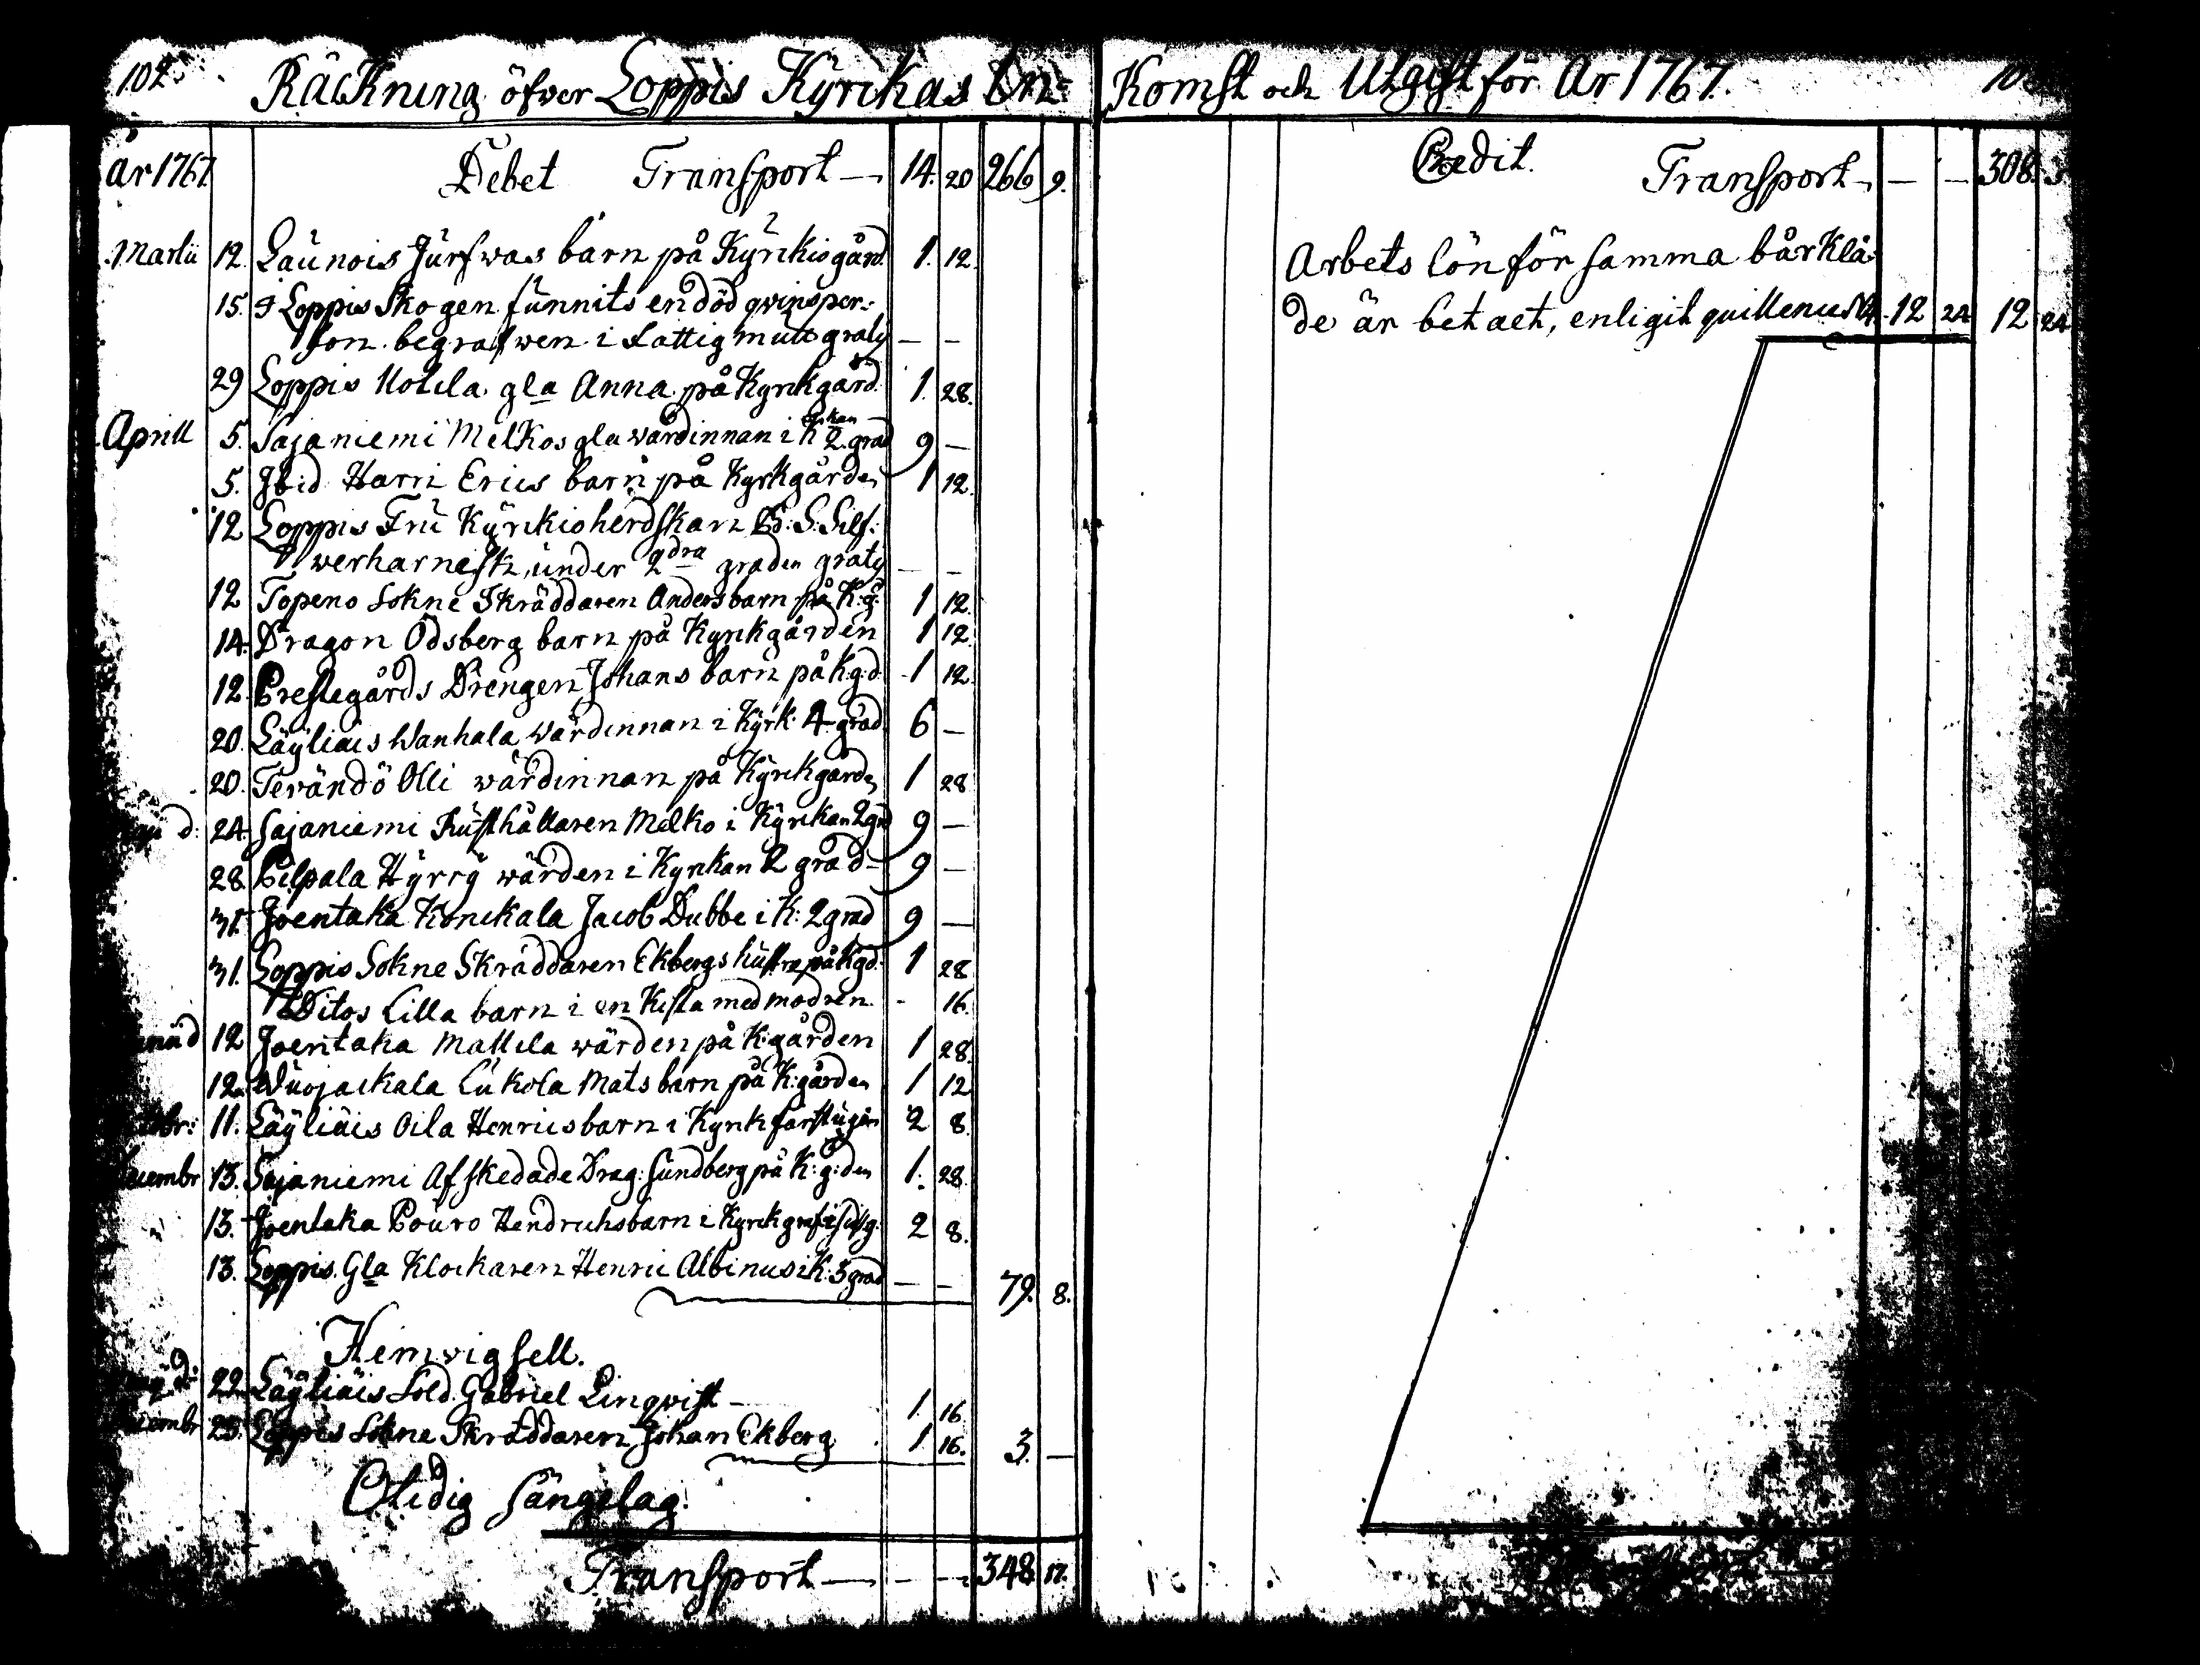 102. Räckning öfver Loppis Kyrckas In=
År 1767. Debet Transport — 14. 20 266 9.
Martii 12. Launois Jurfwas barn på Kyrckiogård. 1. 12.
15. I Loppis Skogen funnits en död qvinsper=
son begrafwen i Fattig mull gratis — —
29 Loppis Uotila gla Anna på Kyrckgård. 1. 28.
Aprill 5. Sajaniemi Melkos gla wärdinnan i Kyrkan 2. grad 9 —
5. Ibid Harri Erics barn på Kyrkgården 1 12.
12 Loppis Fru Kyrckioherdskan Ed: S: Silf=
werharnesk, under 2dra graden gratis — —
12 Topeno Sokne Skräddaren Anders barn på K:g: 1 12.
14. Dragon Ödsberg barn på Kyrckgården 1 12.
12. Prestegårds Drengen Johans barn på Kg:d 1 12.
20. Läyliäis Wanhala wärdinnan i Kyrk: 4 grad. 6 —
20. Terändö Olli wärdinnan på Kyrckgården 1 28
d: 24. Sajaniemi Rusthållaren Melko i Kyrckan 2 grd 9 —
28. Pilpala Hyrry wärden i Kyrckan 2 grad 9 —
31. Joentaka Konckala Jacob Dubbe i K: 2 grad 9 —
31. Loppis Sokne Skräddaren Ekbergs hustru på Kgd. 1 28
Ditos Lilla barn i en Kista med modren. - 16.
12 Joentaka Mattila wärden på K:gården 1 28.
12. Wuojackala Lukola Mats barn på K:gården 1 12
br: 11. Läyliäis Oila Henrics barn i Kyrck farstugan 2 8.
cembr 13. Sajaniemi Afskedade Drag: Sundberg på K:g:den 1. 28.
13. Joentaka Pouro Hendrichs barn i Kyrck 2 8.
13. Loppis Gla Klockaren Henric Albinus i K: 3 grad — — 79. 8.
Hemvigsell.
d: 22. Läyliäis Sold. Gabriel Linqvist — 1. 16.
cembr 23. Loppis Sokne Skräddaren Johan Ekberg 1 16. 3. —
Otidig Sängelag.
Transport — — — 348 17.
Komst och Utgift för År 1767.
Credit. Transport — — — 308.
Arbets lön för samma bårklä=
de är betalt, enligit quittence N 4. 12 24 12 24